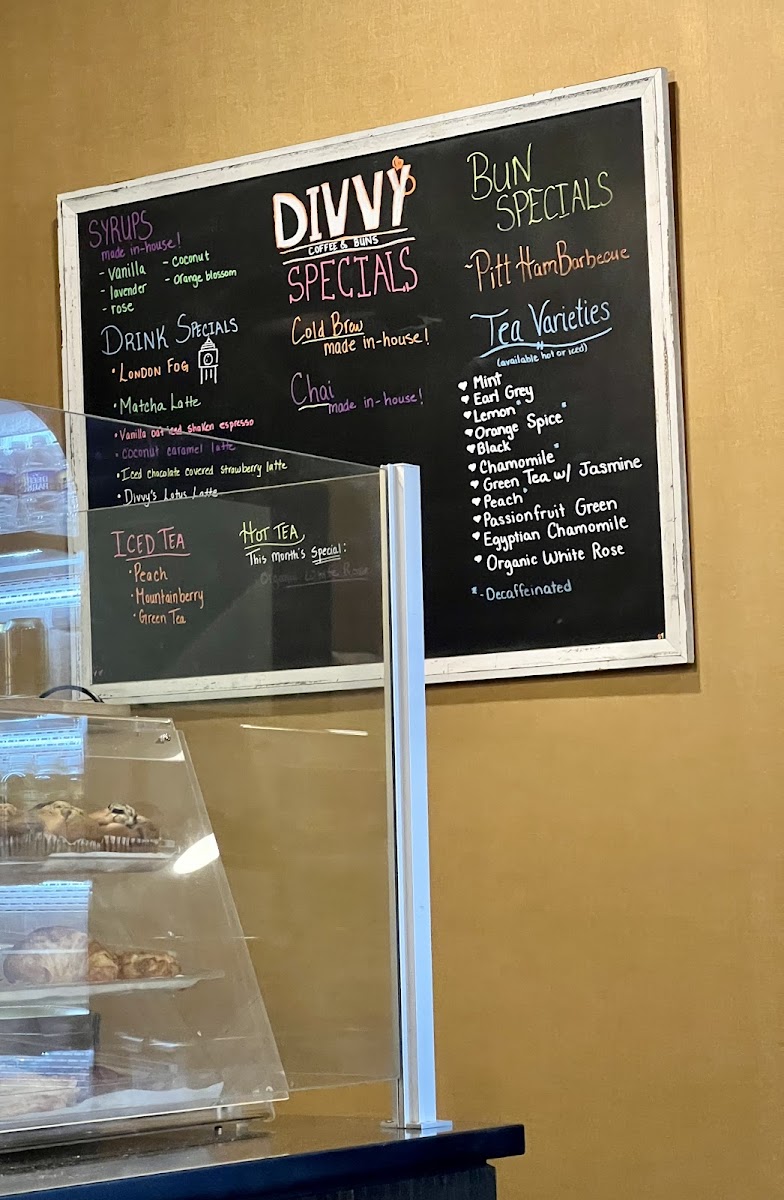 SYRUPS
made in-house!
- vanilla
- lavender
- rose
- coconut
- orange blossom
DRINK SPECIALS
• LONDON FOG
• Matcha Latte
• Vanilla oat iced shaken espresso
• coconut caramel latte
• Iced chocolate covered strawberry latte
• Divvy's Lotus Latte
ICED TEA
• Peach
• Mountainberry
• Green Tea
HOT TEA
This month's Special:
Organic White Rose
DIVVY
COFFEE & BUNS
SPECIALS
Cold Brew
made in-house!
Chai
made in-house!
BUN
SPECIALS
~Pitt HamBarbecue
Tea Varieties
(available hot or iced)
♥ Mint
♥ Earl Grey
♥ Lemon*
♥ Orange Spice*
♥ Black
♥ Chamomile*
♥ Green Tea w/ Jasmine
♥ Peach*
♥ Passionfruit Green
♥ Egyptian Chamomile
♥ Organic White Rose
* - Decaffeinated